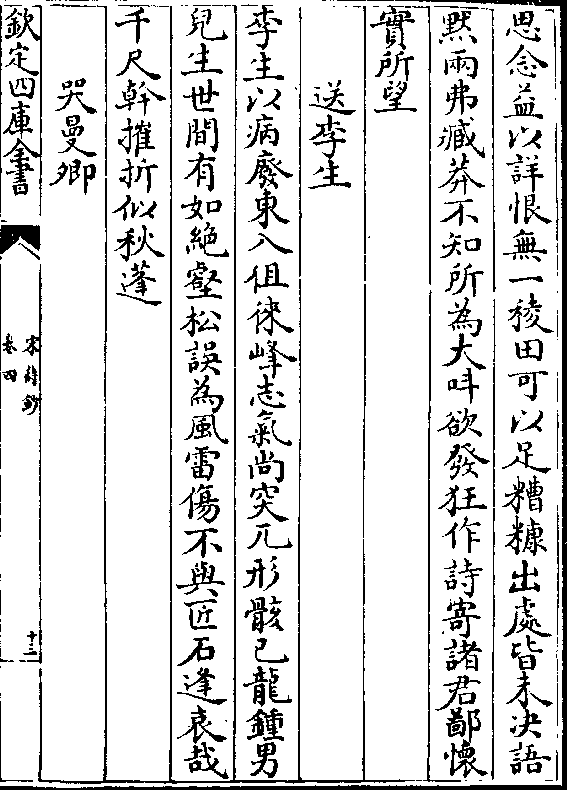 思念益以詳恨無一稜田可以足糟糠出處皆未决語
黙兩弗臧莽不知所為大呌欲發狂作詩寄諸君鄙懐
實所望
送李生
李生以病廢東入徂徠峰志氣尚突兀形骸已龍鍾男
兒生世間有如絶壑松誤為風雷傷不與匠石逢哀哉
千尺幹摧折似秋蓬
哭曼卿
欽定四庫全書
宋詩鈔
卷四
十三